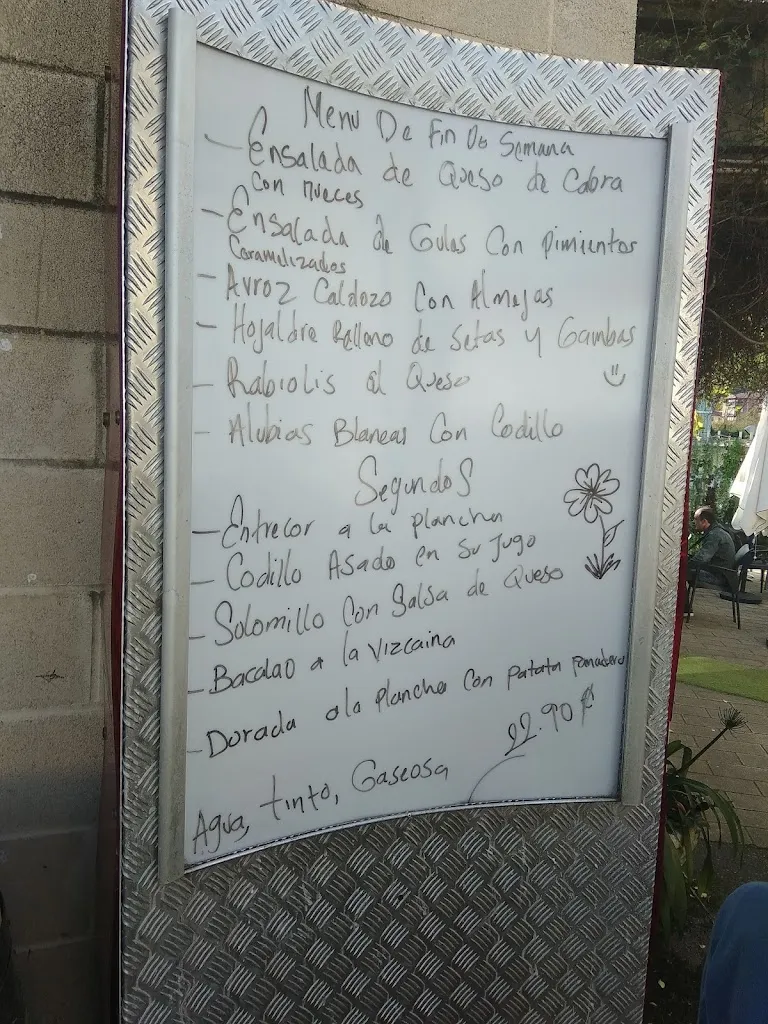 Menu De Fin De Semana
- Ensalada de Queso de Cabra
con nueces
- Ensalada de Gulas Con pimientos
Caramelizados
- Arroz Caldozo Con Almejas
- Hojaldre Relleno de Setas y Gambas
- Rabiolis al Queso
- Alubias Blancas Con Codillo
Segundos
- Entrecor a la plancha
- Codillo Asado en su Jugo
- Solomillo Con Salsa de Queso
- Bacalao a la Vizcaina
- Dorada a la plancha Con patata panadera
22.90 €
Agua, tinto, Gaseosa